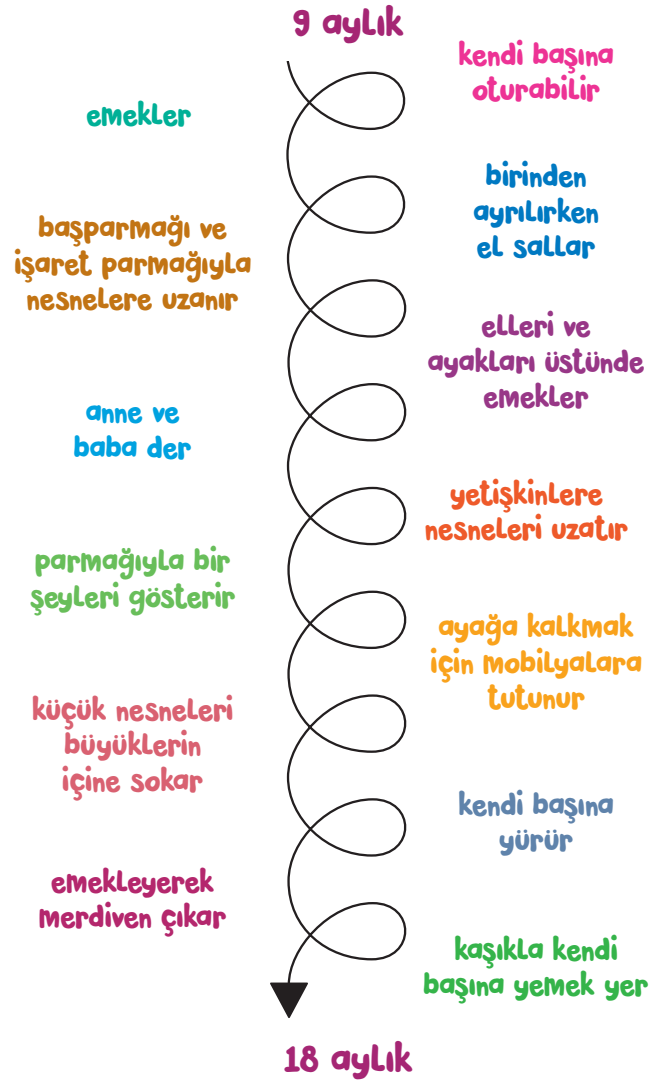 9 aylık
kendi başına
oturabilir
emekler
birinden
ayrılırken
el sallar
başparmağı ve
işaret parmağıyla
nesnelere uzanır
elleri ve
ayakları üstünde
emekler
anne ve
baba der
yetişkinlere
nesneleri uzatır
parmağıyla bir
şeyleri gösterir
ayağa kalkmak
için mobilyalara
tutunur
küçük nesneleri
büyüklerin
içine sokar
kendi başına
yürür
emekleyerek
merdiven çıkar
kaşıkla kendi
başına yemek yer
18 aylık